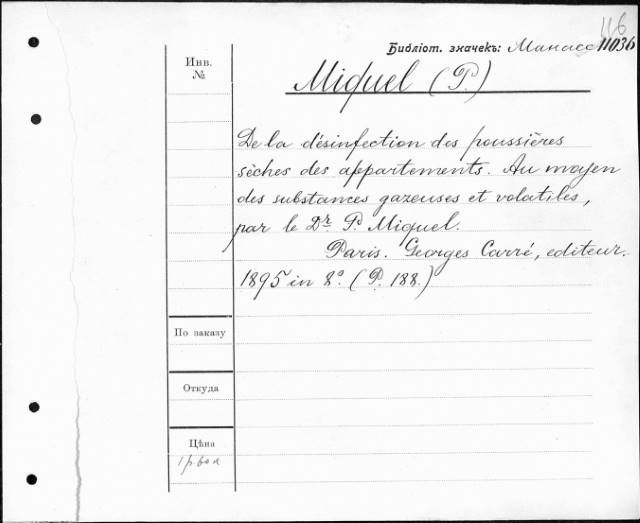 116
Библіот. значекъ: Манасс 11036
Инв.
№
Miquel (P.)
De la désinfection des poussières
sèches des appartements. Au moyen
des substances gazeuses et volatiles,
par le Dr. P. Miquel.
Paris. Georges Carré, editeur.
1895 in 8º. (P. 188.)
По заказу
Откуда
Цѣна
1 р. 60 к